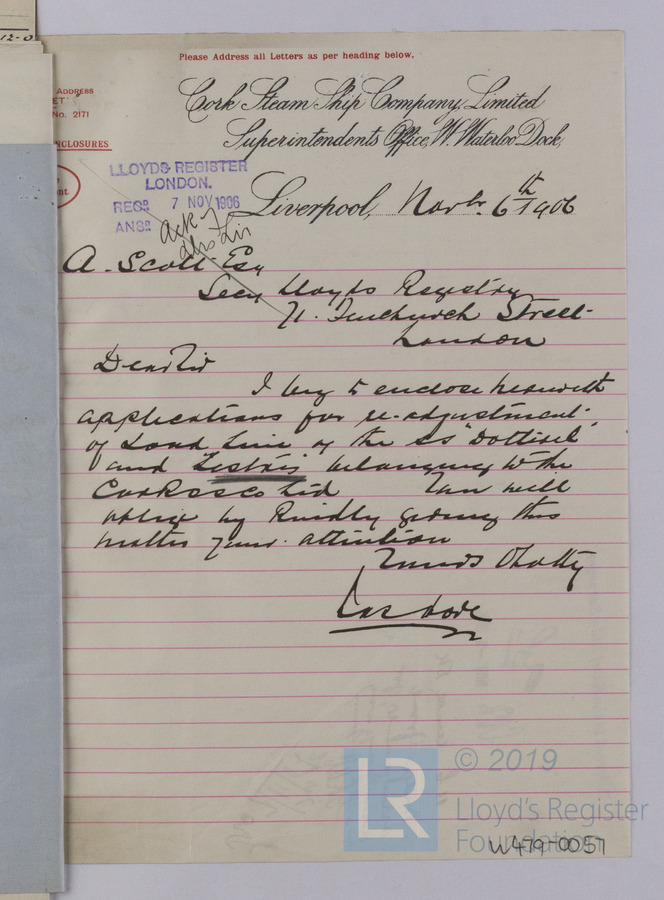 12-0
Please Address all Letters as per heading below.
ADDRESS
No. 2171
NCLOSURES
Cork Steam Ship Company, Limited
Superintendents Office, W. Waterloo Dock,
LLOYDS REGISTER
LONDON.
RECD 7 NOV 1906
ANSD
Ack
Liverpool, Novbr 6th 1906
A. Scott Esq
Secy Lloyds Registry
71. Fenchurch Street
London
Dear Sir
I beg to enclose herewith
applications for re-adjustment
of Load Line of the SS "Dotterel"
and "Lestris" belonging to the
Cork SS Co Ltd You will
oblige by kindly giving this
matter your attention
Yours
LR
© 2019
Lloyd's Register
Foundation
W479-0057